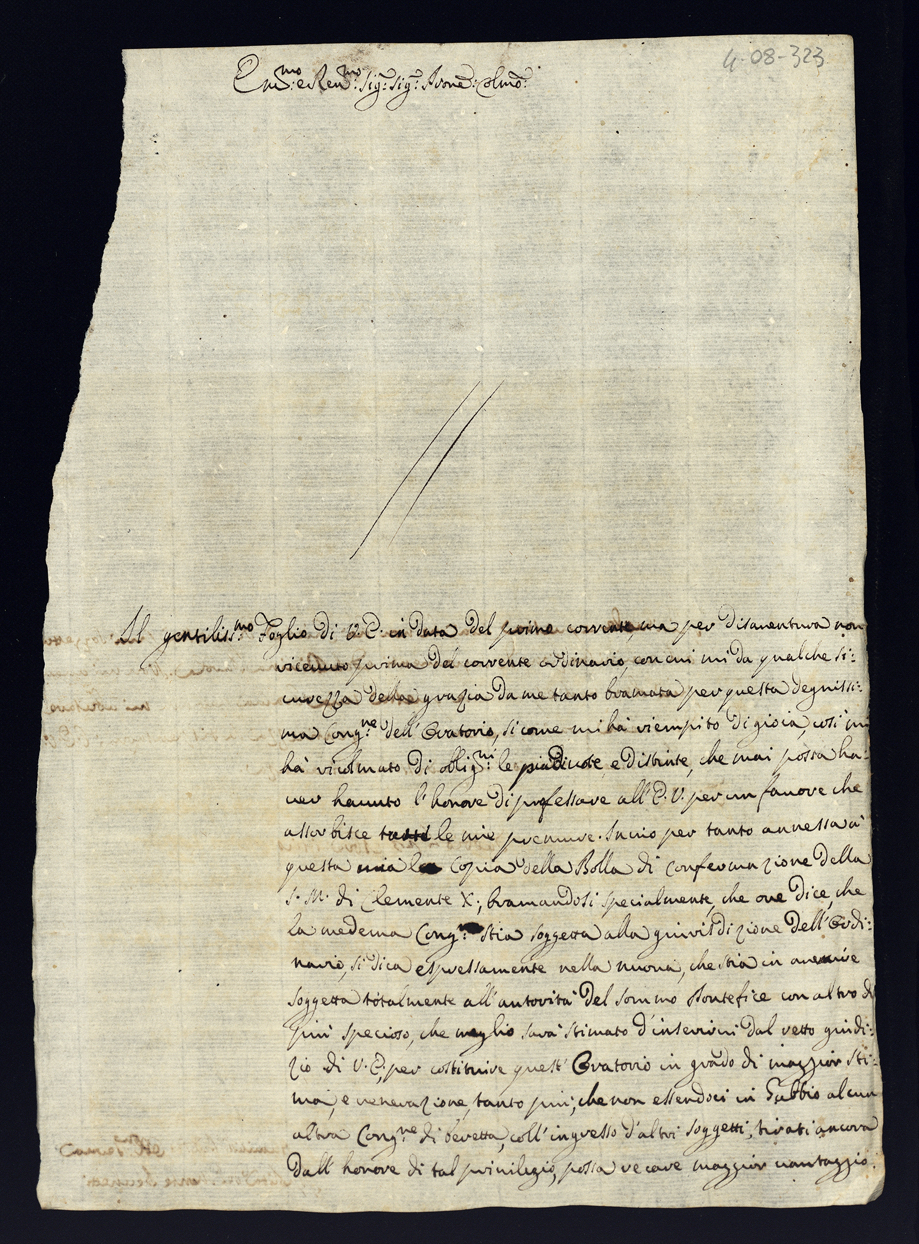 4-08-323
Em.mo e Rev.mo Sig.r Sig.r Prone Colmo
Il gentiliss.mo Foglio di V. E. in data del primo corrente ma per disauentura non
riceuuto prima del corrente ordinario, con cui mi da qualche si:
curezza della grazia da me tanto bramata per questa degnissi:
ma Cong.ne dell' Oratorio, si come mi hà riempito di gioia, così mi
hà ricolmato di oblig.ni le più diuote, e distinte, che mai possa ha:
uer hauuto l' honore di professare all' E. V. per un fauore che
assorbisce tutte le mie premure. Inuio per tanto annessa à
questa mia la Copia della Bolla di Confermazione della
S. M. di Clemente X., bramandosi specialmente, che oue dice, che
la medema Cong.ne stia soggetta alla giurisdizione dell' Ordi:
nario, si dica espressamente nella nuoua, che stia in auenire
soggetta totalmente all' autorità del sommo Pontefice con altro di
più specioso, che meglio sarà stimato d' inserirui dal retto giudi:
zio di V. E., per costituire quest' Oratorio in grado di maggior sti:
ma, e venerazione, tanto più, che non essendoci in Gubbio alcun
altra Cong.ne di beretta, coll' ingresso d' altri soggetti, tirati ancora
dall' honore di tal priuilegio, possa recare maggior uantaggio.